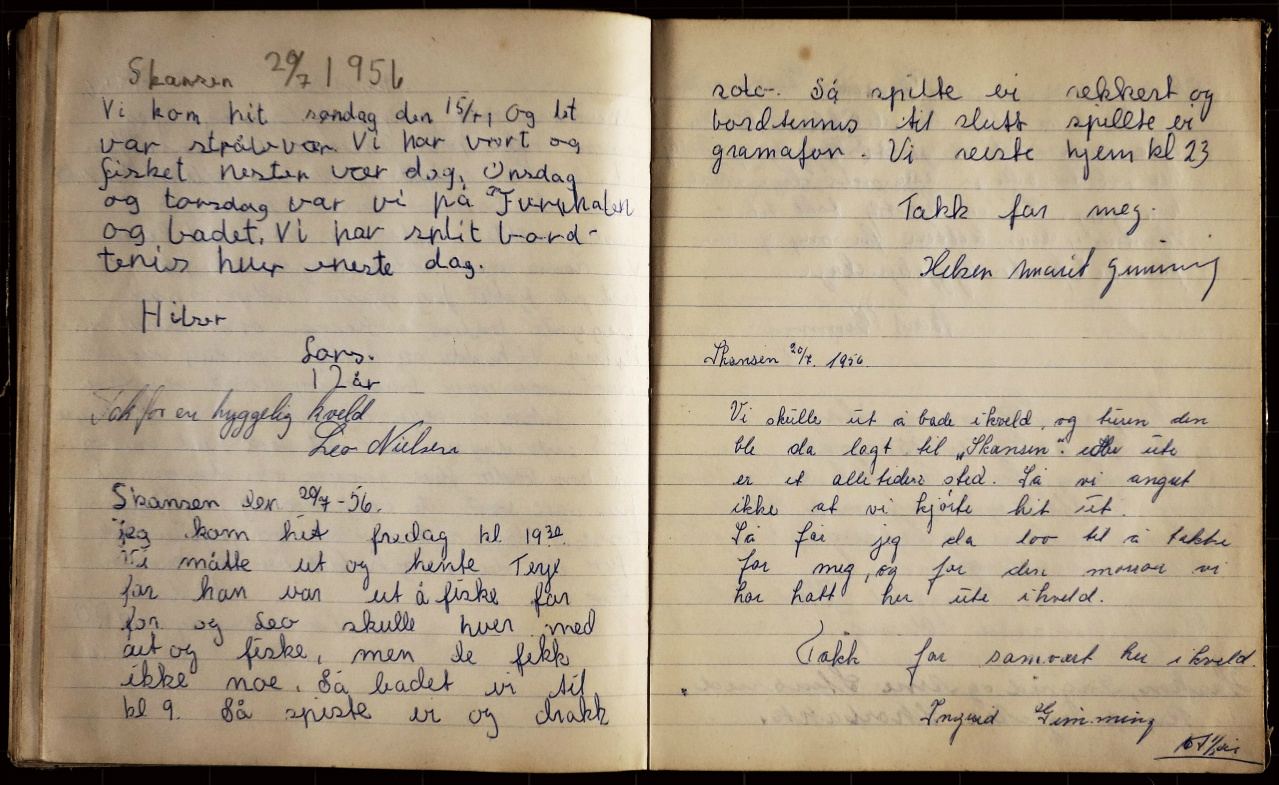 Skansen 20/7 1956
Vi kom hit søndag den 15/7, og det
var strålvær Vi har vært og
fisket nesten vær dag, Onsdag
og torsdag var vi på Furuhalen
og badet. Vi har split bord-
tenis hver eneste dag.
Hilser
Lars.
12 år
Tak for en hyggelig kveld
Leo Nielsen
Skansen den 20/7-56.
jeg kom hit fredag kl 19 30
Vi måtte ut og hente Terje
for han var ut å fiske får
for og Leo skulle hver med
aut og fiske, men de fikk
ikke noe. Så badet vi til
kl 9. Så spiste vi og drakk
solo. Så spilte vi sekkert og
bordtennis til slutt spillte vi
gramafon. Vi reiste hjem kl 23
Takk for meg.
Hilsen Marit Gimming
Skansen 20/7. 1956
Vi skulle ut å bade ikveld, og turen den
ble da lagt til „Skansen". ute
er et alletiders sted. Så vi angret
ikke at vi kjørte hit ut.
Så får jeg da lov til å takke
for meg, og for den morroa vi
har hatt her ute ikveld.
Takk for samvært her ikveld.
Ingrid Gimming